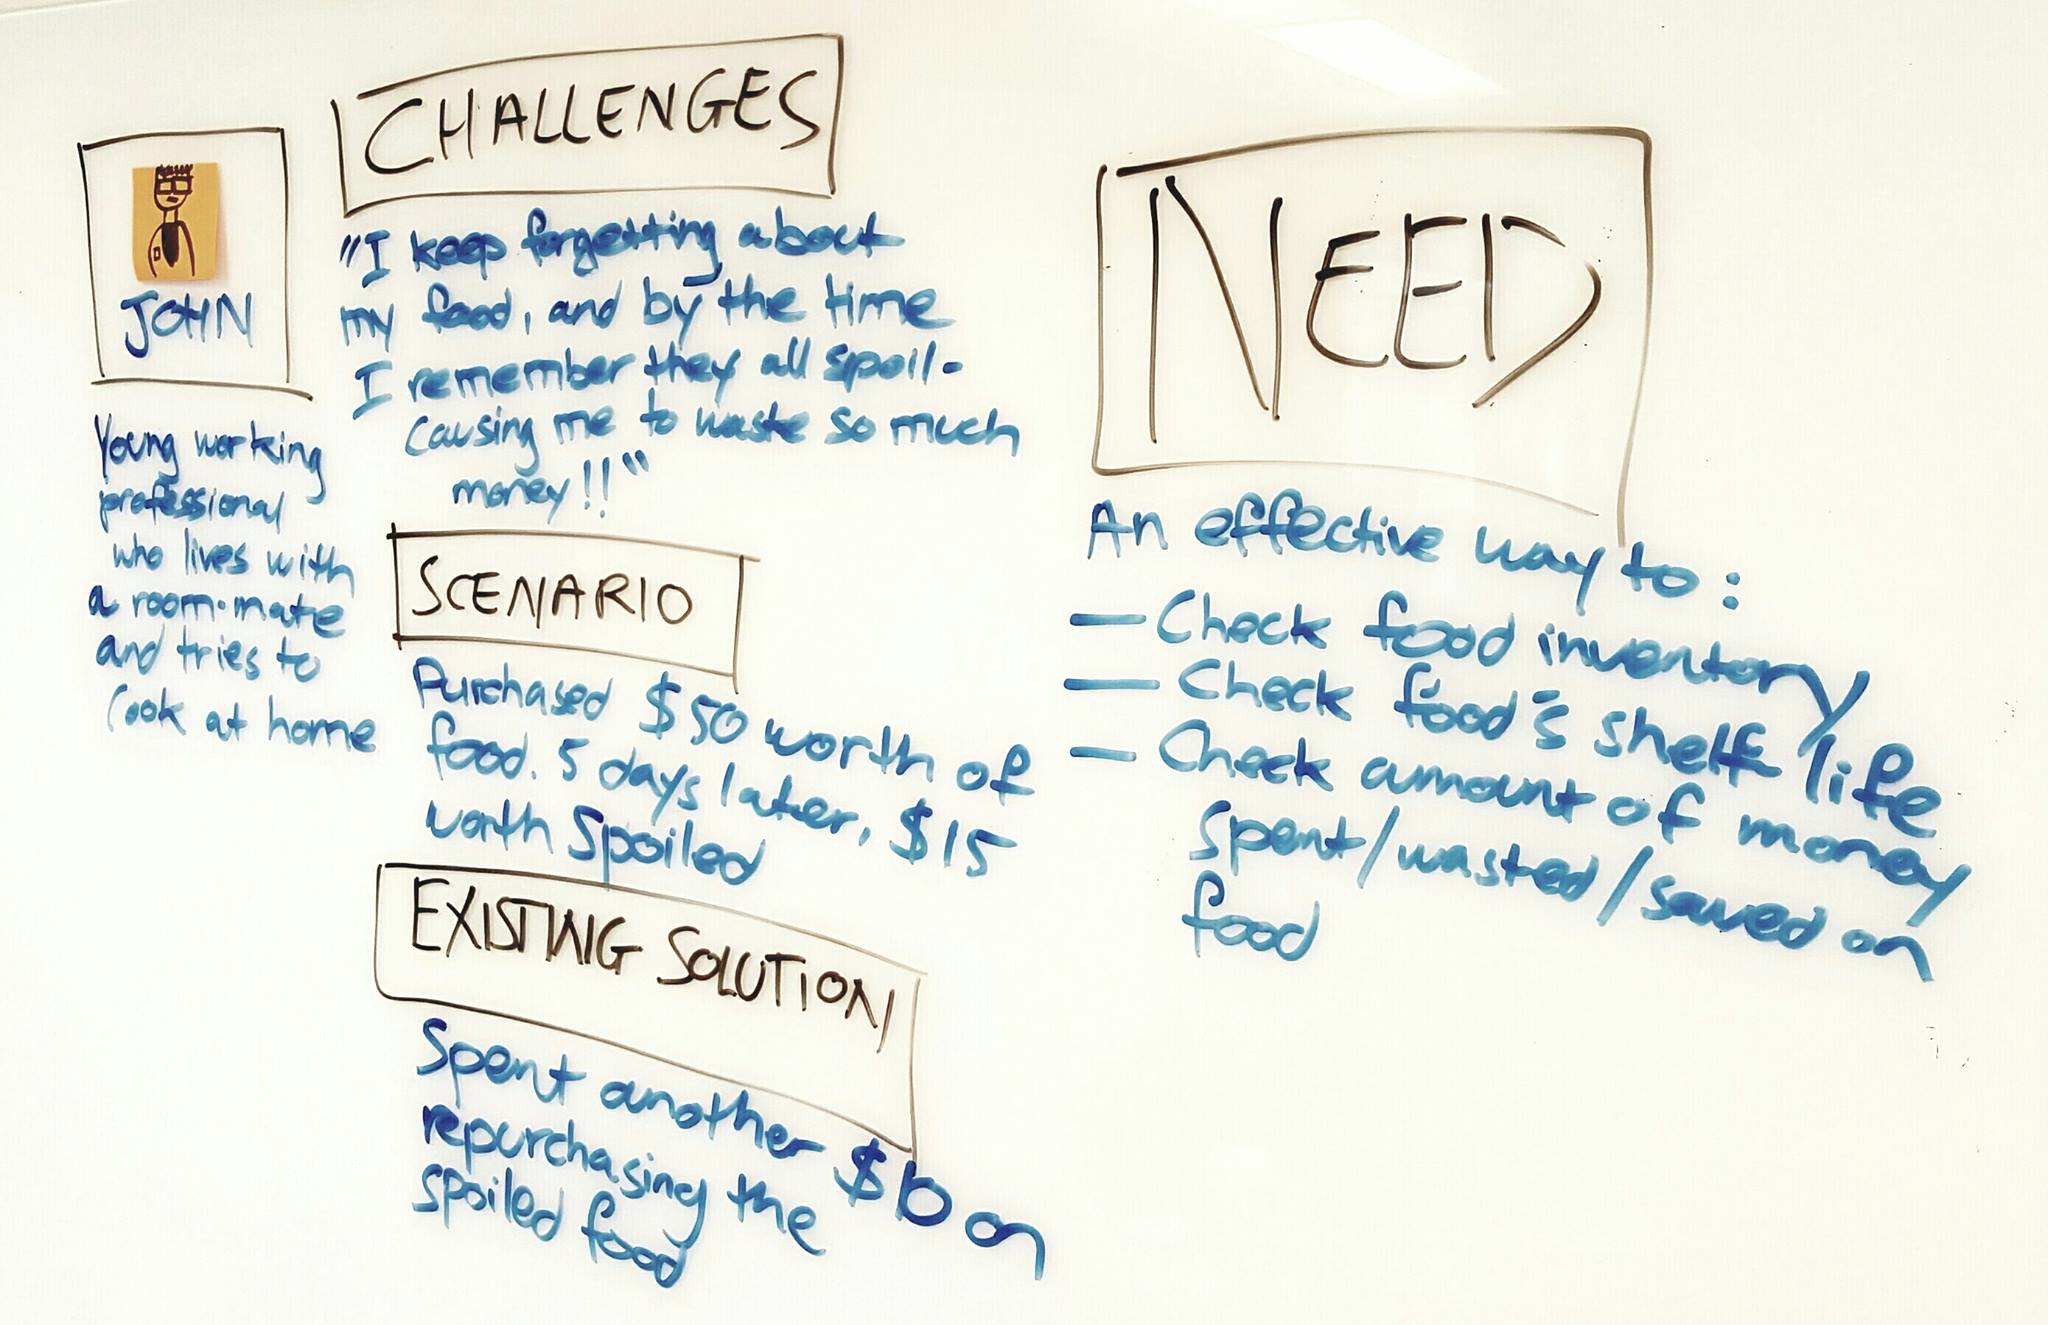 JOHN
Young working
professional
who lives with
a room-mate
and tries to
cook at home
CHALLENGES
"I keep forgetting about
my food, and by the time
I remember they all spoil-
causing me to waste so much
money!!"
SCENARIO
Purchased $50 worth of
food. 5 days later, $15
worth spoiled
EXISTING SOLUTION
Spent another $10 on
repurchasing the
spoiled food
NEED
An effective way to:
— Check food inventory
— Check food's shelf life
— Check amount of money
spent/wasted/saved on
food